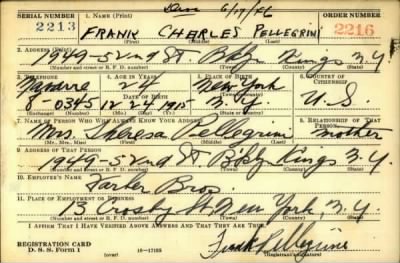 SERIAL NUMBER 1. NAME (Print) ORDER NUMBER
2213 FRANK CHARLES PELLEGRINI 2216
(First) (Middle) (Last)
2. ADDRESS (Print)
1949-52nd St. Bklyn Kings N.Y.
(Number and street or R. F. D. number) (Town) (County) (State)
3. TELEPHONE 4. AGE IN YEARS 5. PLACE OF BIRTH 6. COUNTRY OF CITIZENSHIP
Navarre New York
8-0345 12 24 1915 N.Y. U.S.
(Exchange) (Number) (Mo.) (Day) (Yr.) (State or country)
7. NAME OF PERSON WHO WILL ALWAYS KNOW YOUR ADDRESS 8. RELATIONSHIP OF THAT PERSON
Mrs. Theresa Pellegrini mother
(Mr., Mrs., Miss) (First) (Middle) (Last)
9. ADDRESS OF THAT PERSON
1949-52nd St Bklyn Kings N.Y.
(Number and street or R. F. D. number) (Town) (County) (State)
10. EMPLOYER'S NAME
Bros.
11. PLACE OF EMPLOYMENT OR BUSINESS
13 Crosby St New York, N.Y.
(Number and street or R. F. D. number) (Town) (County) (State)
I AFFIRM THAT I HAVE VERIFIED ABOVE ANSWERS AND THAT THEY ARE TRUE.
REGISTRATION CARD
D. S. S. Form 1 Frank Pellegrini
(Registrant's signature)